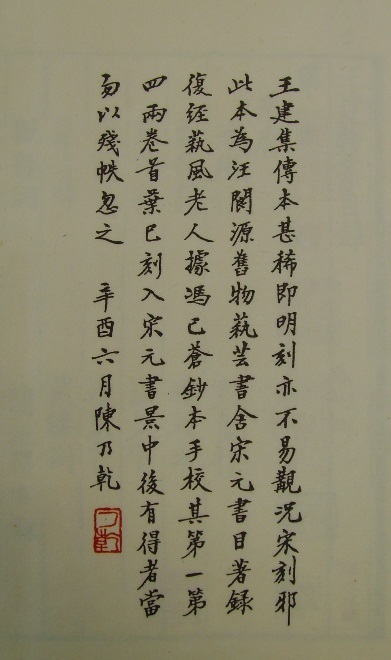 王建集傳本甚稀即明刻亦不易覯況宋刻邪
此本為汪閬源舊物藝芸書舍宋元書目著錄
復經藝風老人據馮己蒼鈔本手校其第一第
四兩卷首葉已刻入宋元書景中後有得者當
勿以殘帙忽之 辛酉六月陳乃乾
乃乾